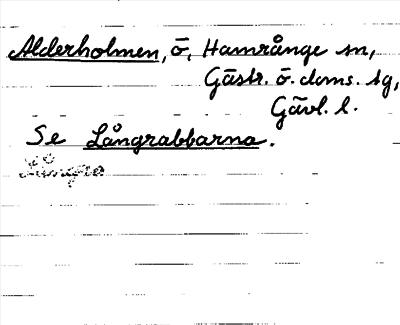 Alderholmen, ö, Hamrånge sn,
Gästr. ö. doms. sg,
Gävl. l.
Se Långrabbarna.